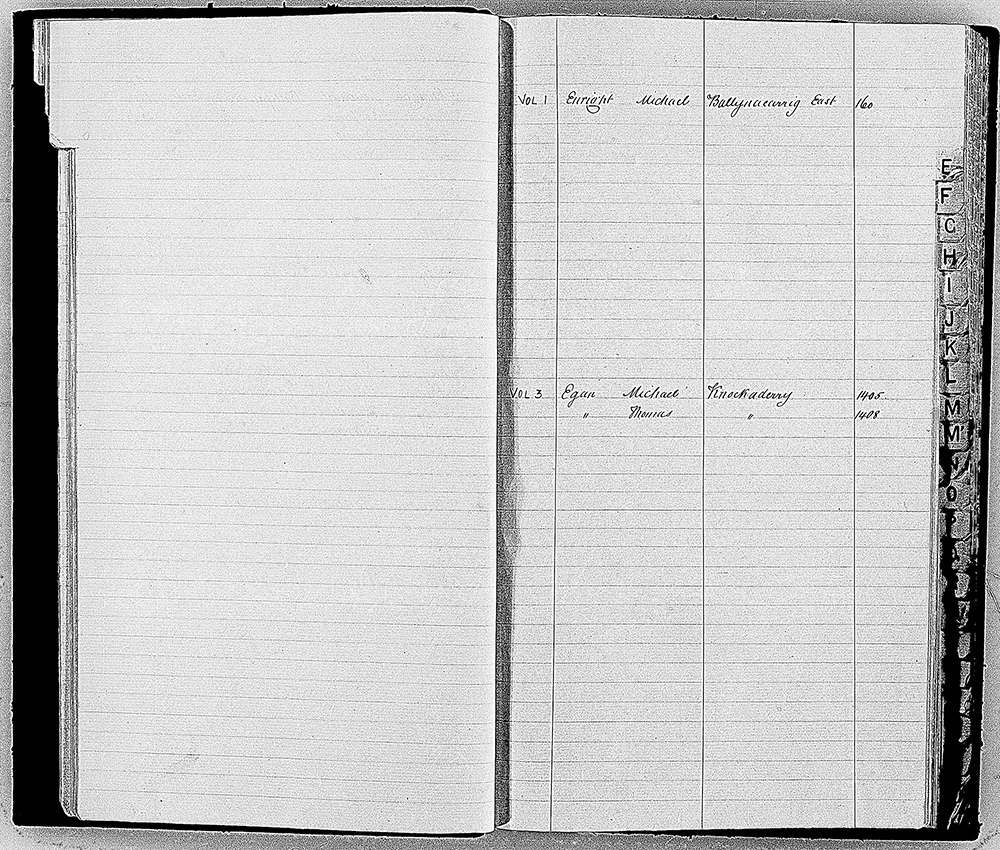 VOL 1 Enright Michael Ballynacarrig East 160
VOL 3 Egan Michael Knockaderry 1405
" Thomas " 1408
E
F
G
H
I
J
K
L
M
Mc
N
O
P